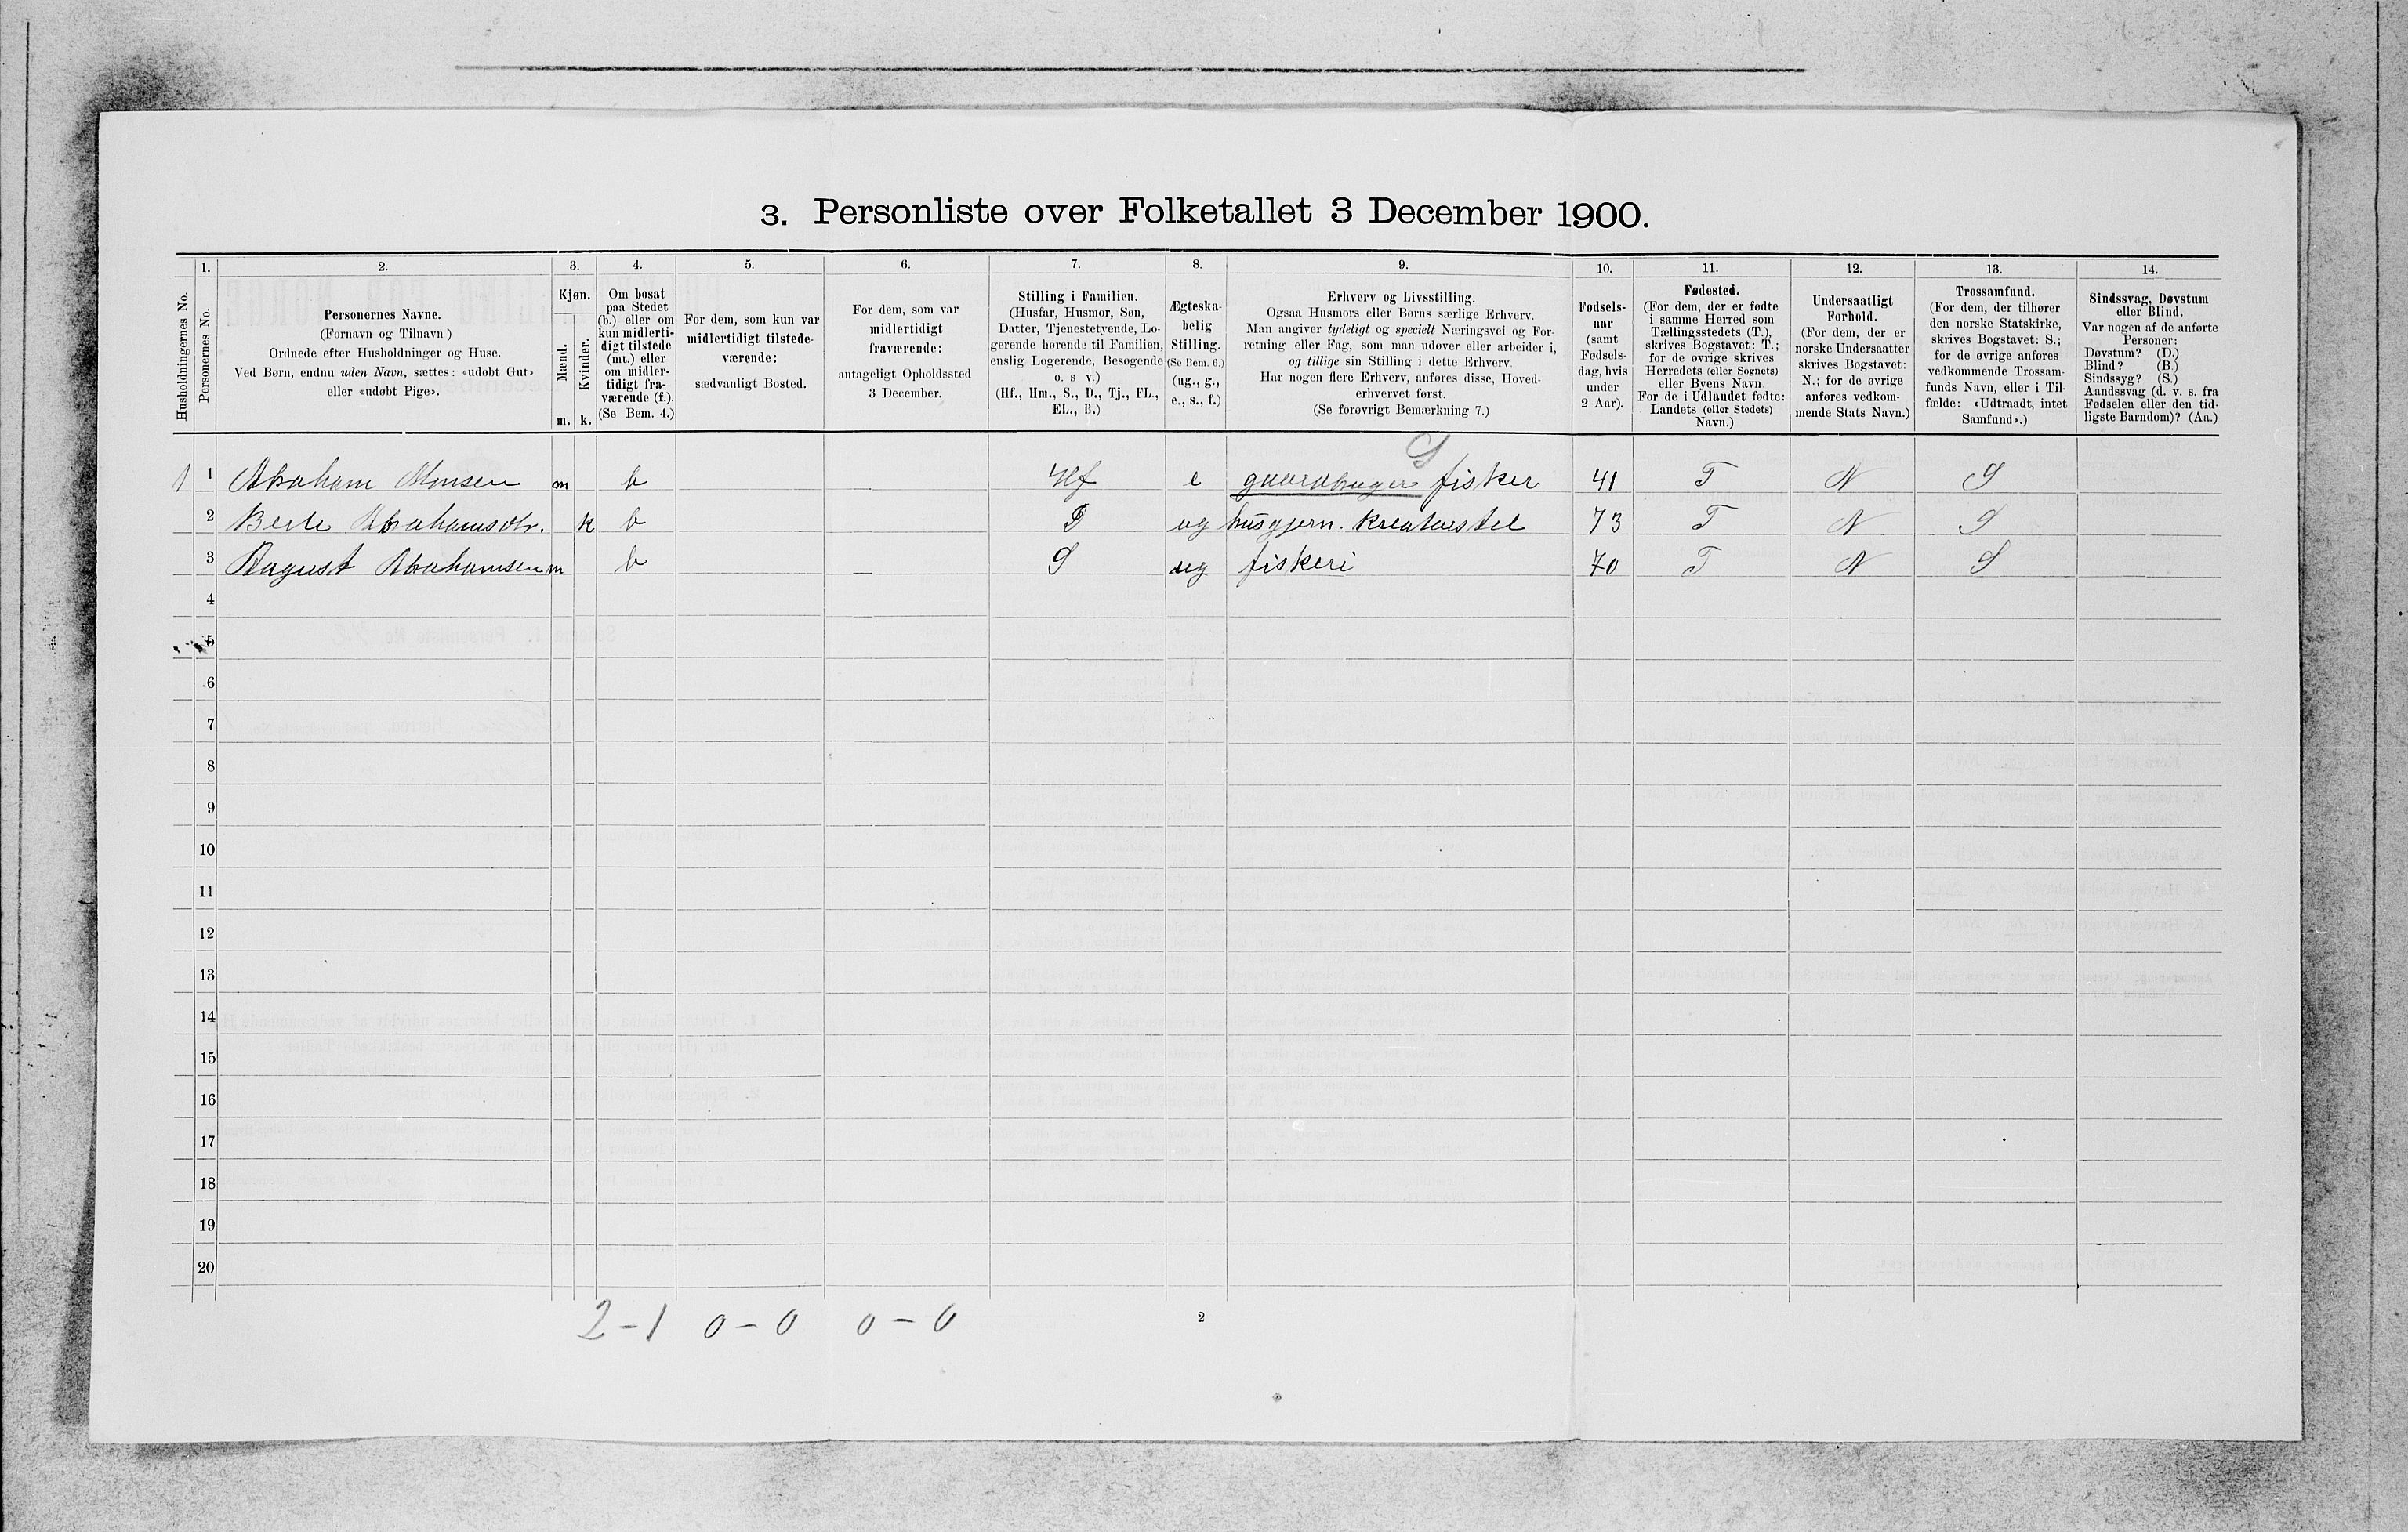 3. Personliste over Folketallet 3 December 1900.
Husholdningernes No.
1.
Personernes No.
2.
Personernes Navne.
(Fornavn og Tilnavn)
Ordnede efter Husholdninger og Huse.
Ved Børn, endnu uden Navn, sættes: «udøbt Gut»
eller «udøbt Pige».
3.
Kjøn.
Mænd.
Kvinder.
m. k.
4.
Om bosat
paa Stedet
(b.) eller om
kun midlerti-
digt tilstede
(mt.) eller
om midler-
tidigt fra-
værende (f.).
(Se Bem. 4.)
5.
For dem, som kun var
midlertidigt tilstede-
værende:
sædvanligt Bosted.
6.
For dem, som var
midlertidigt
fraværende:
antageligt Opholdssted
3 December.
7.
Stilling i Familien.
(Husfar, Husmor, Søn,
Datter, Tjenestetyende, Lo-
gerende hørende til Familien,
enslig Logerende, Besøgende
o. s v.)
(Hf., Hm., S., D., Tj., FL.,
EL., B.)
8.
Ægteska-
belig
Stilling.
(Se Bem. 6.)
(ug., g.,
e., s., f.)
9.
Erhverv og Livsstilling.
Ogsaa Husmors eller Børns særlige Erhverv.
Man angiver tydeligt og specielt Næringsvei og For-
retning eller Fag, som man udøver eller arbeider i,
og tillige sin Stilling i dette Erhverv.
Har nogen flere Erhverv, anføres disse, Hoved-
erhvervet først.
(Se forøvrigt Bemærkning 7.)
10.
Fødsels-
aar
(samt
Fødsels-
dag, hvis
under
2 Aar).
11.
Fødested.
(For dem, der er fødte
i samme Herred som
Tællingsstedets (T.),
skrives Bogstavet: T.;
for de øvrige skrives
Herredets (eller Sognets)
eller Byens Navn.
For de i Udlandet fødte:
Landets (eller Stedets)
Navn.)
12.
Undersaatligt
Forhold.
(For dem, der er
norske Undersaatter
skrives Bogstavet:
N.; for de øvrige
anføres vedkom-
mende Stats Navn.)
13.
Trossamfund.
(For dem, der tilhører
den norske Statskirke,
skrives Bogstavet: S.;
for de øvrige anføres
vedkommende Trossam-
funds Navn, eller i Til-
fælde: «Udtraadt, intet
Samfund».)
14.
Sindssvag, Døvstum
eller Blind.
Var nogen af de anførte
Personer:
Døvstum? (D.)
Blind? (B.)
Sindssyg? (S.)
Aandssvag (d. v. s. fra
Fødselen eller den tid-
ligste Barndom)? (Aa.)
S
1 1 Abraham Monsen m b Hf e gaardbruger fisker 41 T N S
2 Berte Abrahamsdtr. k b D ug husgjern. kreaturstel 73 T N S
3 August Abrahamsen m b S ug fiskeri 70 T N S
4
5
6
7
8
9
10
11
12
13
14
15
16
17
18
19
20
2-1 0-0 0-0
2